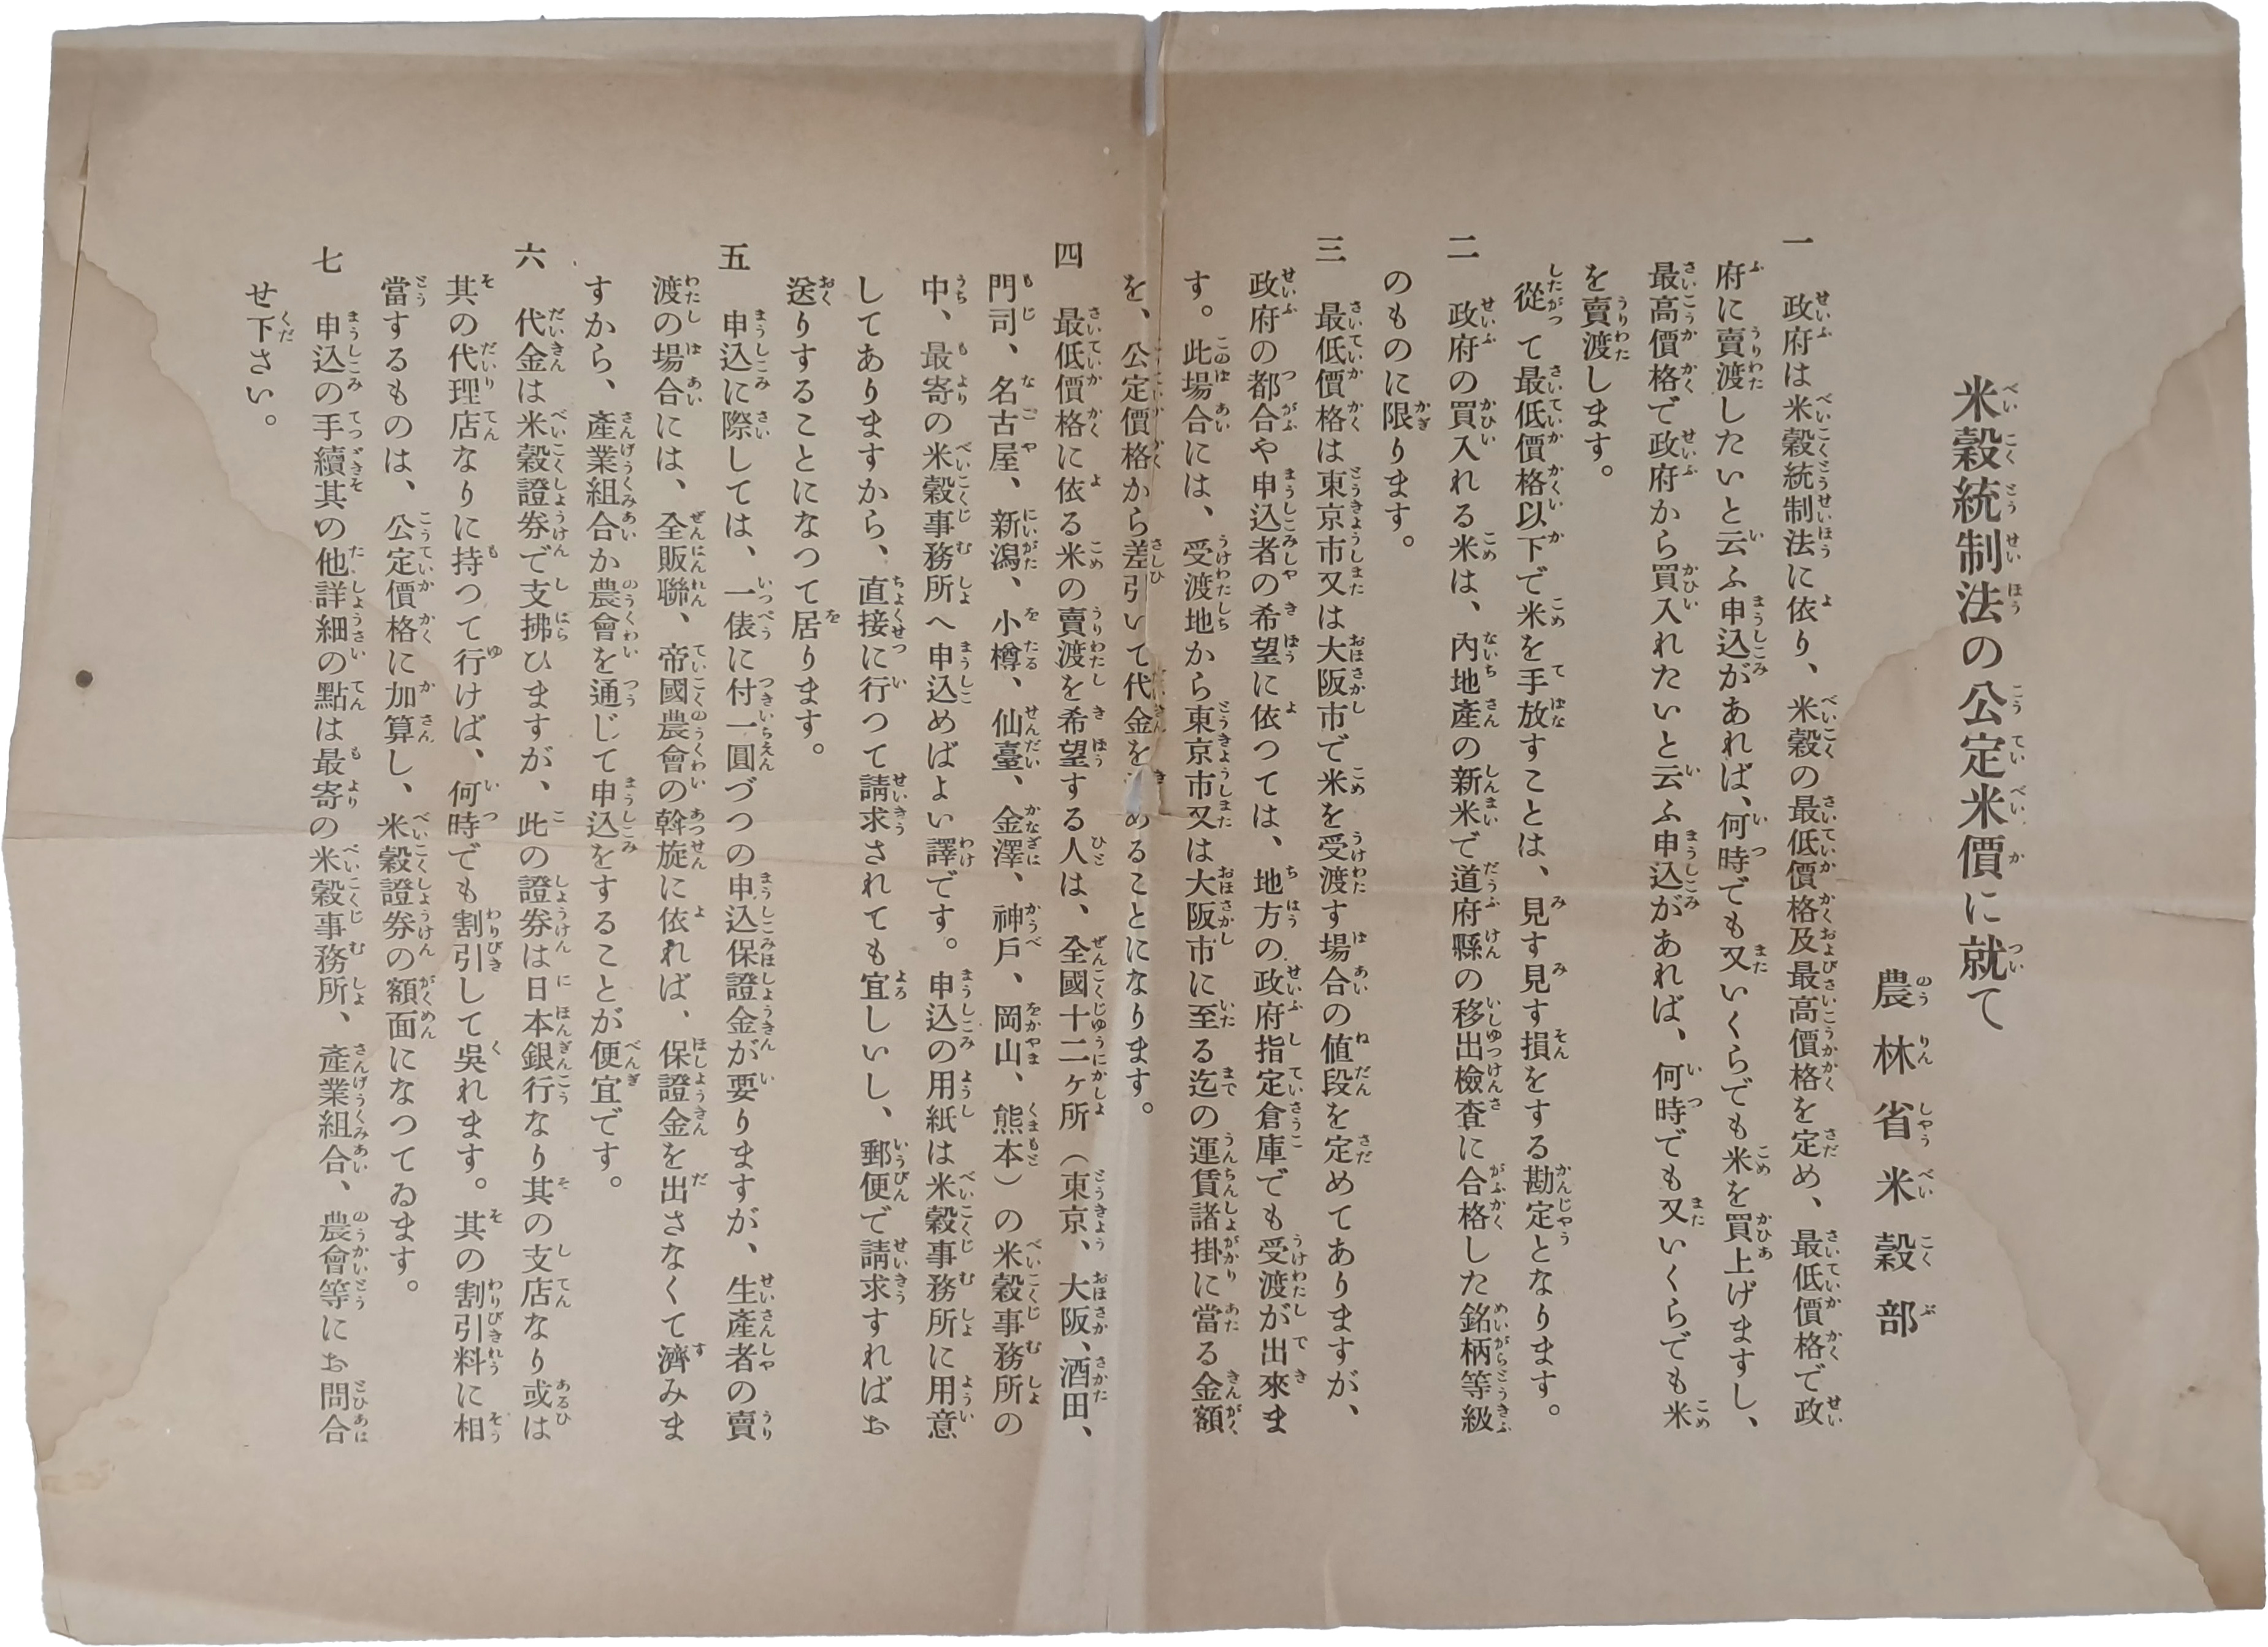 米穀統制法の公定米價に就て
農林省米穀部
一　政府は米穀統制法に依り、米穀の最低價格及最高價格を定め、最低價格で政
府に賣渡したいと云ふ申込があれば、何時でも又いくらでも米を買上げますし、
最高價格で政府から買入れたいと云ふ申込があれば、何時でも又いくらでも米
を賣渡します。
從つて最低價格以下で米を手放すことは、見す見す損をする勘定となります。
二　政府の買入れる米は、內地產の新米で道府縣の移出檢査に合格した銘柄等級
のものに限ります。
三　最低價格は東京市又は大阪市で米を受渡す場合の値段を定めてありますが、
政府の都合や申込者の希望に依つては、地方の政府指定倉庫でも受渡が出來ま
す。此場合には、受渡地から東京市又は大阪市に至る迄の運賃諸掛に當る金額
を、公定價格から差引いて代金をめることになります。
四　最低價格に依る米の賣渡を希望する人は、全國十二ヶ所（東京、大阪、酒田、
門司、名古屋、新潟、小樽、仙臺、金澤、神戶、岡山、熊本）の米穀事務所の
中、最寄の米穀事務所へ申込めばよい譯です。申込の用紙は米穀事務所に用意
してありますから、直接に行つて請求されても宜しいし、郵便で請求すればお
送りすることになつて居ります。
五　申込に際しては、一俵に付一圓づつの申込保證金が要りますが、生產者の賣
渡の場合には、全販聯、帝國農會の斡旋に依れば、保證金を出さなくて濟みま
すから、產業組合か農會を通じて申込をすることが便宜です。
六　代金は米穀證券で支拂ひますが、此の證券は日本銀行なり其の支店なり或は
其の代理店なりに持つて行けば、何時でも割引して吳れます。其の割引料に相
當するものは、公定價格に加算し、米穀證券の額面になつてゐます。
七　申込の手續其の他詳細の點は最寄の米穀事務所、產業組合、農會等にお問合
せ下さい。